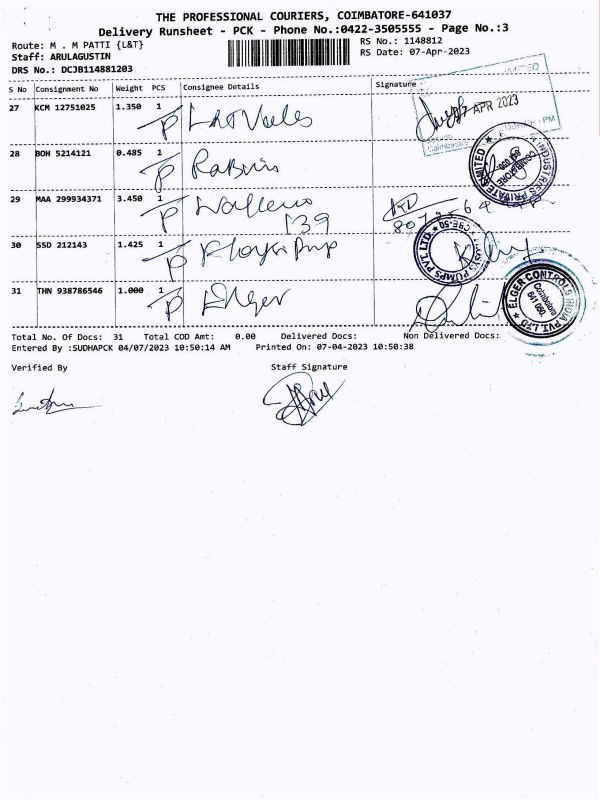 THE PROFESSIONAL COURIERS, COIMBATORE-641037
Delivery Runsheet - PCK - Phone No.:0422-3505555 - Page No.:3
Route: M . M PATTI {L&T}
RS No.: 1148812
Staff: ARULAGUSTIN
RS Date: 07-Apr-2023
DRS No.: DCJB114881203
S No Consignment No Weight PCS Consignee Details Signature
27 KCM 12751025 1.350 1 L&T Valves
07 APR 2023
Coimbatore
28 BOH 5214121 0.485 1
INDUSTRIES PRIVATE LIMITED
COIMBATORE
29 MAA 299934371 3.450 1
139
30 SSD 212143 1.425 1
PUMPS PVT. LTD. CBE-50
31 THN 938786546 1.000 1 Elger
ELGER CONTROLS INDIA PVT. LTD
Coimbatore
641 050.
Total No. Of Docs: 31 Total COD Amt: 0.00 Delivered Docs: Non Delivered Docs:
Entered By :SUDHAPCK 04/07/2023 10:50:14 AM Printed On: 07-04-2023 10:50:38
Verified By Staff Signature